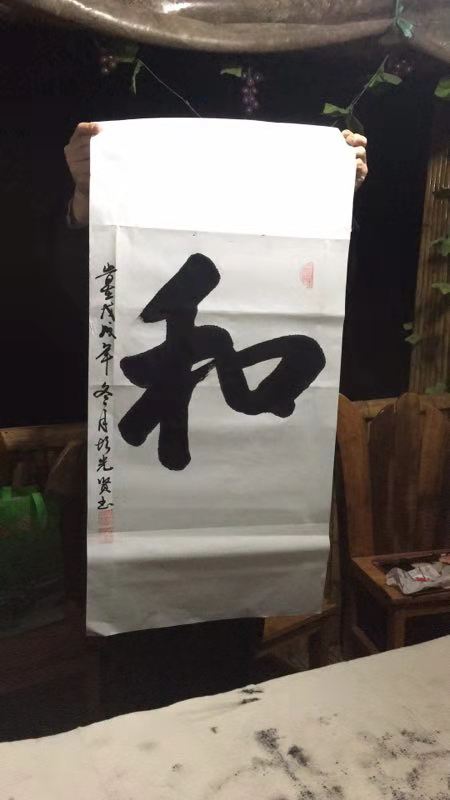 和
岁在戊戌年冬月胡光贤书